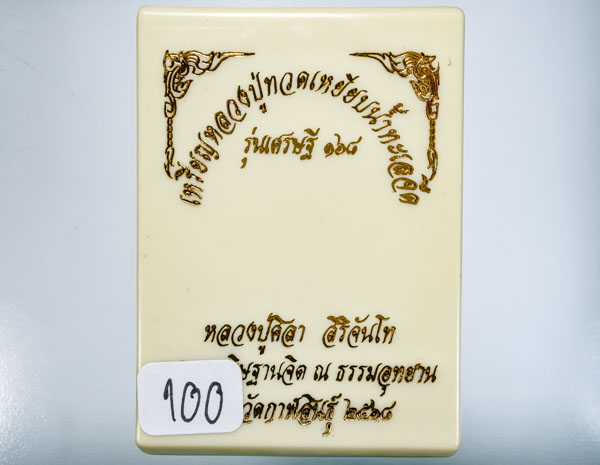 เหรียญหลวงปู่ทวดเหยียบน้ำทะเลจืด
รุ่นเศรษฐี ๑๖๘
หลวงปู่ศิลา สิริจันโท
ษฐานจิต ณ ธรรมอุทยาน
วัดกาฬสินธุ์ ๒๕๖๘
100